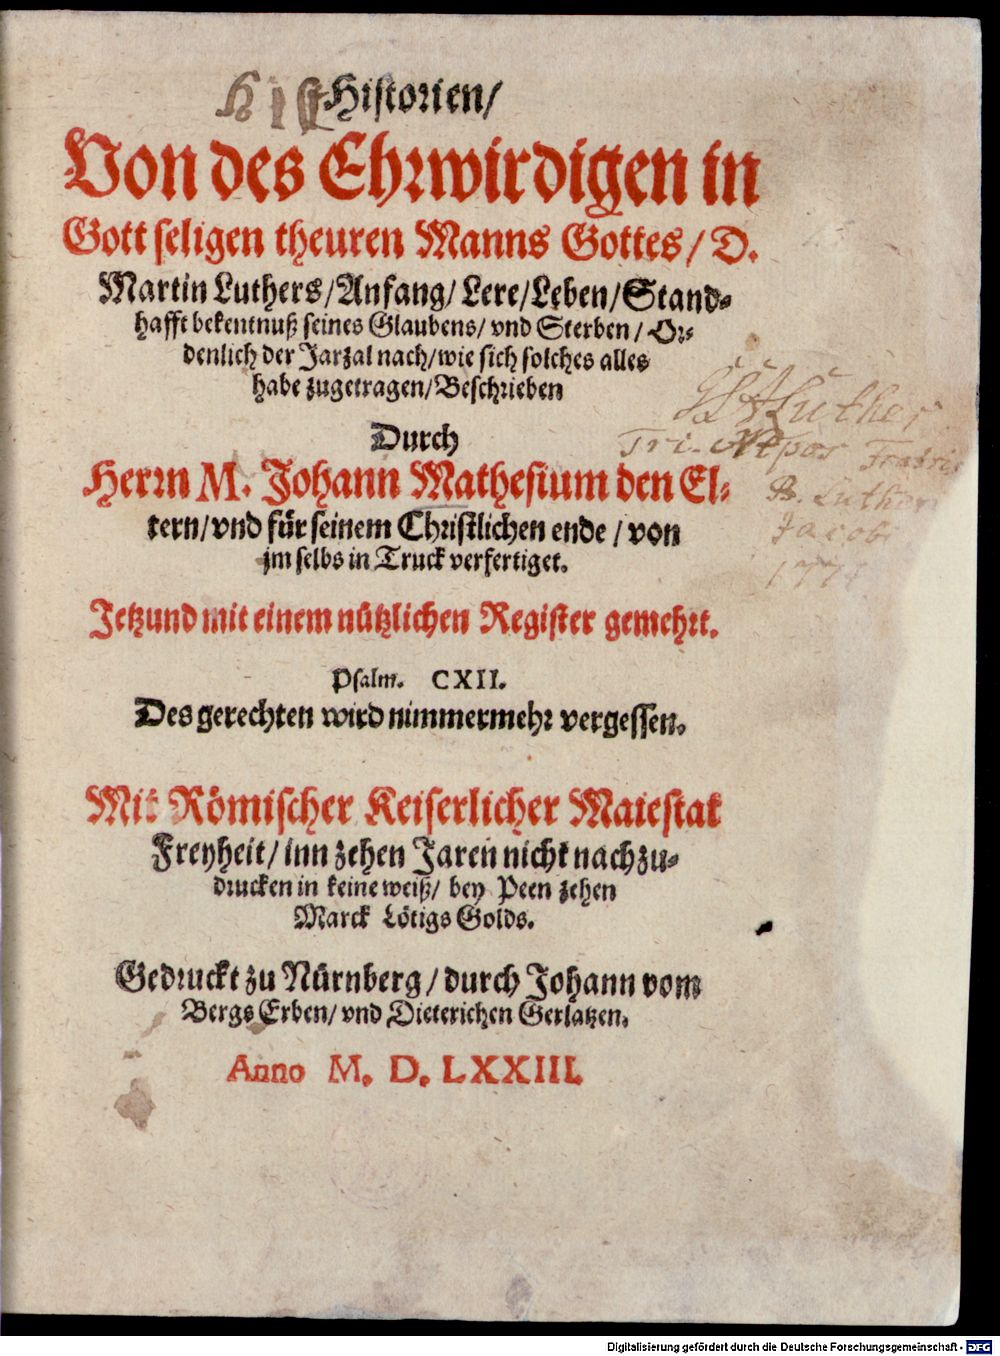 His Historien/
Von des Ehrwirdigen in
Gott seligen theuren Manns Gottes/ D.
Martin Luthers/ Anfang/ Lere/ Leben/ Stand-
hafft bekentnuß seines Glaubens/ vnd Sterben/ Or-
denlich der Jarzal nach/ wie sich solches alles
habe zugetragen/ Beschrieben
Durch
Herrn M. Johann Mathesium den El-
tern/ vnd für seinem Christlichen ende/ von
jm selbs in Truck verfertiget.
Jetzund mit einem nützlichen Register gemehrt.
Psalm. CXII.
Des gerechten wird nimmermehr vergessen.
Mit Römischer Keiserlicher Maiestat
Freyheit/ inn zehen Jaren nicht nachzu-
drucken in keine weiß/ bey Peen zehen
Marck Lötigs Golds.
Gedruckt zu Nürnberg/ durch Johann vom
Bergs Erben/ vnd Dieterichen Gerlatzen.
Anno M. D. LXXIII.
Luther
Tri-Nepos Fratris
B. Lutheri
Jacobi
Digitalisierung gefördert durch die Deutsche Forschungsgemeinschaft - DFG